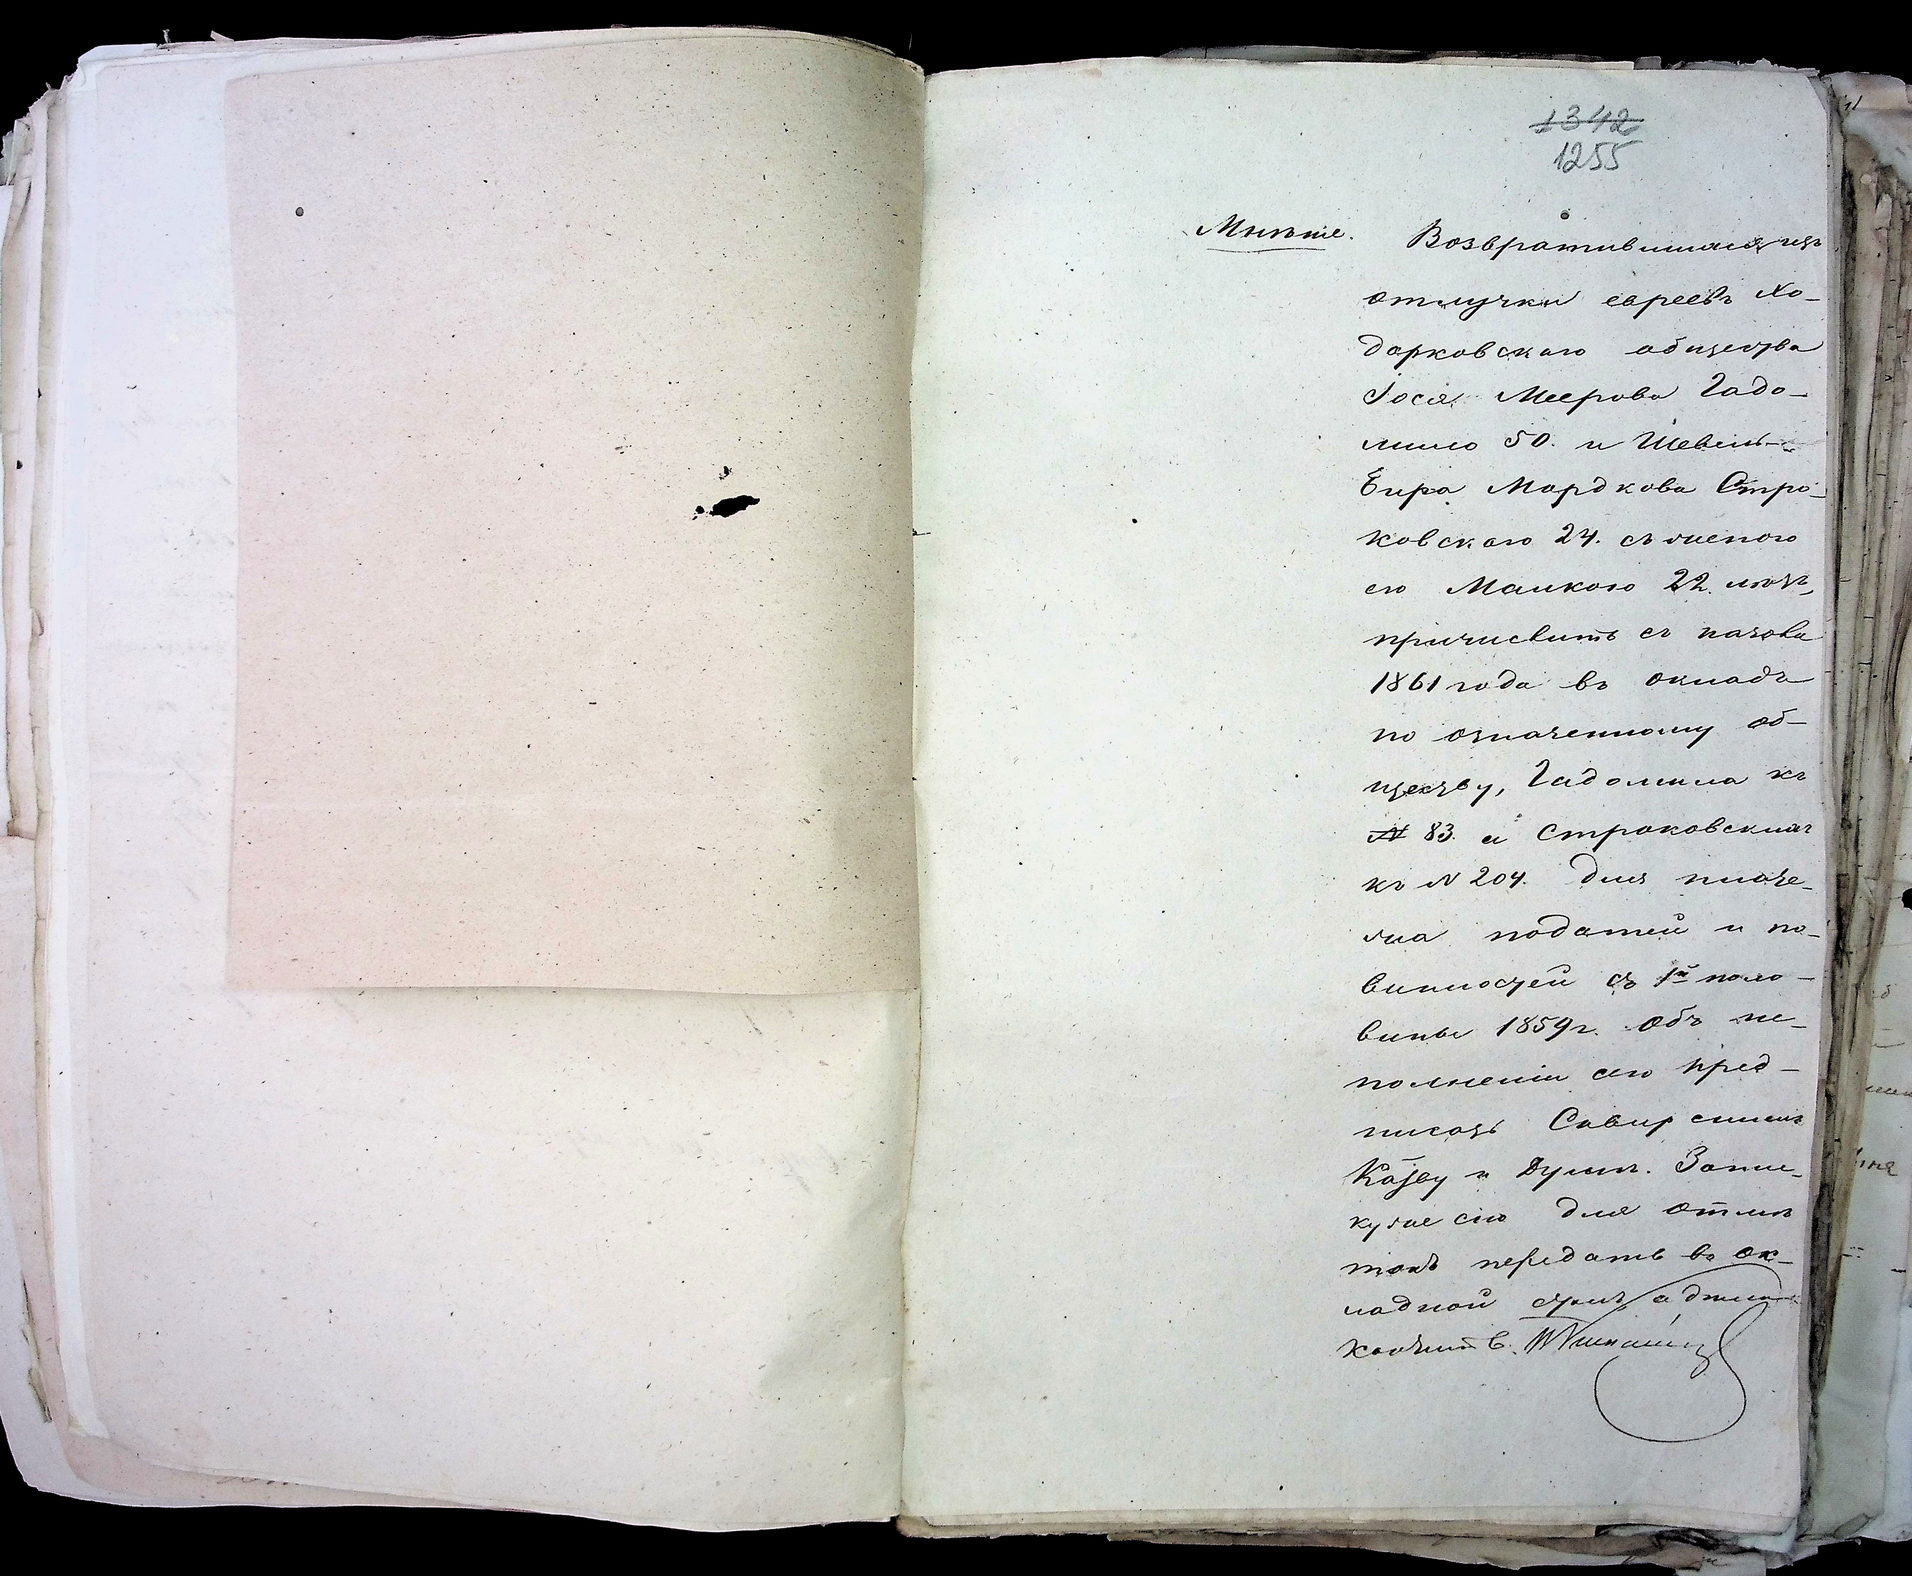 1342
1255
Мнѣніе.
Возвратившихся изъ
отлучки евреевъ Хо-
дорковскаго общества
Іося Меерова Гадо-
мило 50. и Шевель-
Бера Мордкова Стро-
ковскаго 24. съ женою
его Малкою 22 лѣтъ,
причислить съ начала
1861 года въ окладъ
по означенному об-
ществу, Гадомила къ
№ 83. а Строковскихъ
къ № 204. для плате-
жа податей и по-
винностей съ 1й поло-
вины 1859 г. Объ ис-
полненіи сего пред-
писать Сквирскимъ
Каз-ву и Думѣ. Запис-
ку же сію для отмѣ-
токъ передать въ ок-
ладной столъ а дѣло
кончить.